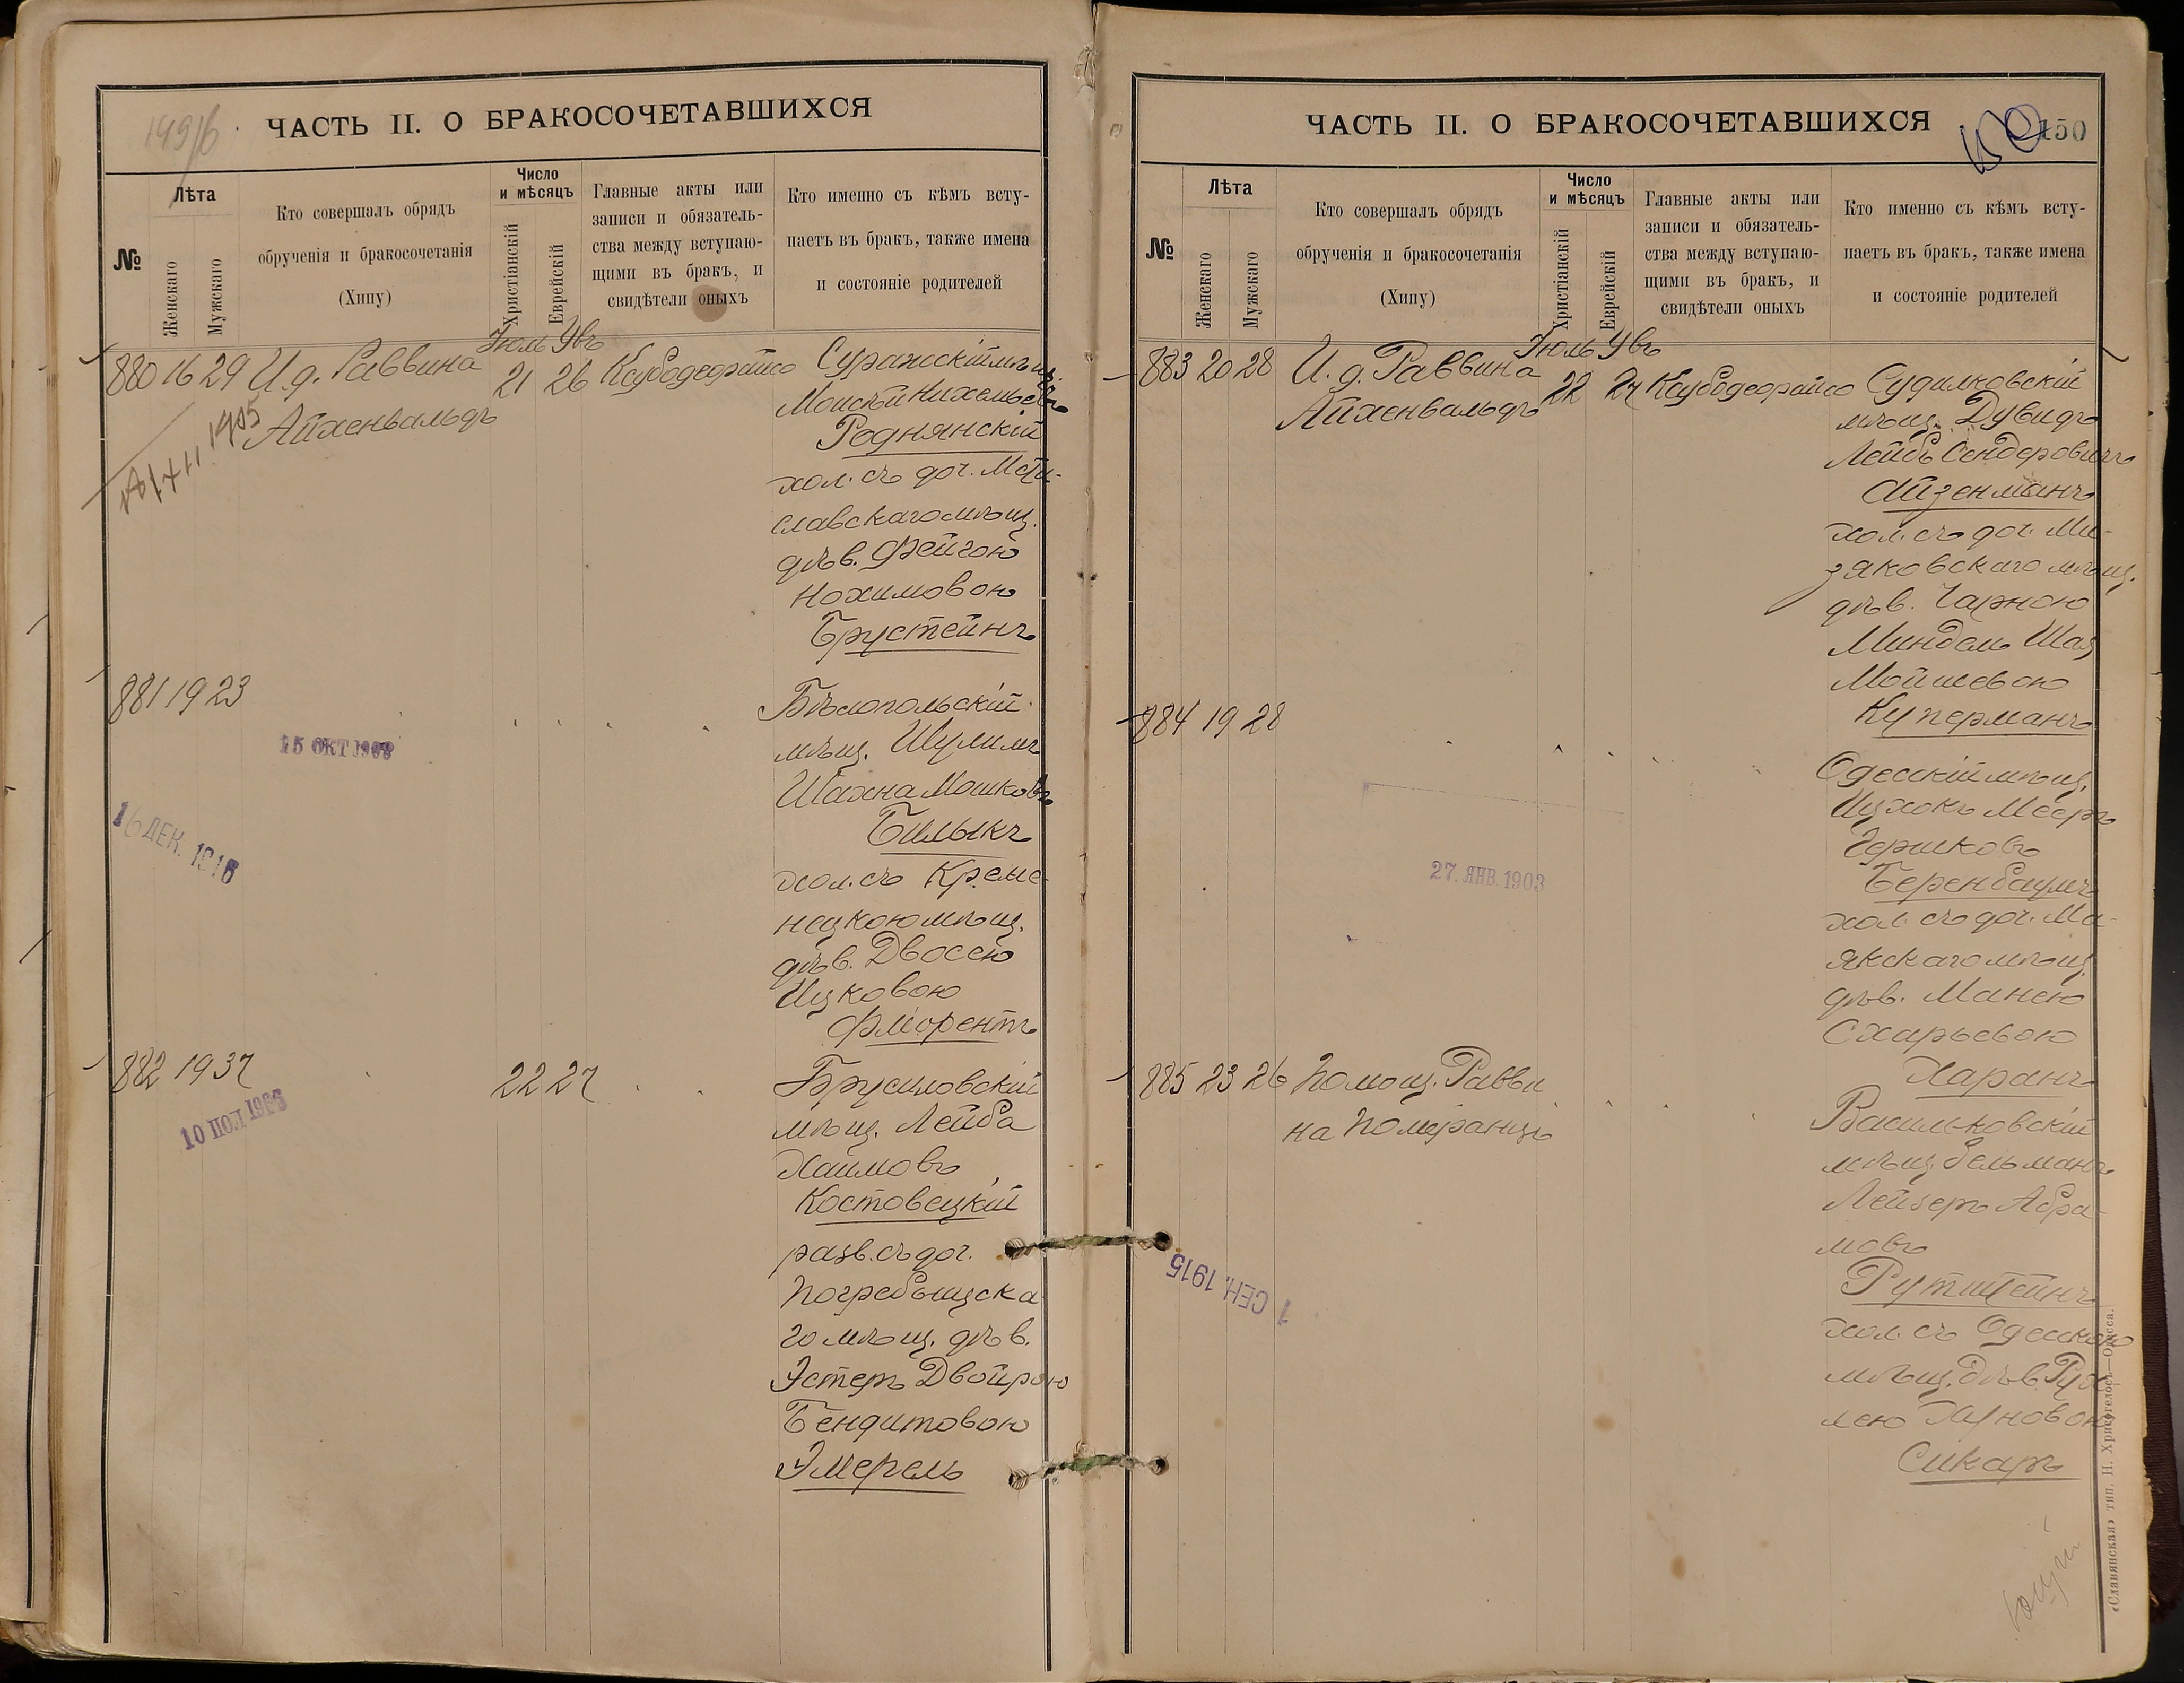 149 об.
ЧАСТЬ II. О БРАКОСОЧЕТАВШИХСЯ
№
Лѣта
Женскаго
Мужскаго
Кто совершалъ обрядъ
обрученія и бракосочетанія
(Хипу)
Число
и мѣсяцъ
Христіанскій
Еврейскій
Главные акты или
записи и обязатель-
ства между вступаю-
щими въ бракъ, и
свидѣтели оныхъ
Кто именно съ кѣмъ всту-
паетъ въ бракъ, также имена
и состояніе родителей
Іюль Увъ
880 16 29 И. д. Раввина 21 26
Айхенвальдъ
1905
Суражскій мѣщ.
Моисѣй
Реднянскій
хол. съ доч. Мсти-
славскаго мѣщ.
дѣв. Фейгою
Нохимовою
Брустейнъ
881 19 23
15 ОКТ
16 ДЕК. 1916
Бѣлопольскій
мѣщ. Шулимъ
Шахна Мошковъ
Билыкъ
хол. съ Креме-
нецкою мѣщ.
дѣв. Двосею
Ицковою
Фліорентъ
882 19 37 22 27
Брусиловскій
мѣщ. Лейба
Хаимовъ
Костовецкій
разв. съ доч.
Погребыщска-
го мѣщ. дѣв.
Эстеръ Двойрою
Бендитовою
Эмерель
ЧАСТЬ II. О БРАКОСОЧЕТАВШИХСЯ
150
№
Лѣта
Женскаго
Мужскаго
Кто совершалъ обрядъ
обрученія и бракосочетанія
(Хипу)
Число
и мѣсяцъ
Христіанскій
Еврейскій
Главные акты или
записи и обязатель-
ства между вступаю-
щими въ бракъ, и
свидѣтели оныхъ
Кто именно съ кѣмъ всту-
паетъ въ бракъ, также имена
и состояніе родителей
Іюль Увъ
883 20 28 И. д. Раввина 22 27
Айхенвальдъ
Судилковскій
мѣщ. Дувидъ
Лейбъ Сендеровичъ
Айзенманъ
хол. съ доч. Ми-
зяковскаго мѣщ.
дѣв. Чарною
Миндель Шая
Мойшевою
Куперманъ
884 19 28
27. ЯНВ. 1903
Одесскій мѣщ.
Ицхокъ Мееръ
Гершковъ
Беренбаумъ
хол. съ доч. Ма-
якскаго мѣщ.
дѣв. Манею
Схарьевою
Харанъ
885 23 26 Помощ. Равви
на Померанцъ
1 СЕН. 1915
Васильковскій
мѣщ. Зельманъ
Лейзеръ Абра-
мовъ
Рутштейнъ
хол. съ Одесскою
мѣщ. дѣв. Рух
лею Хуновою
Сикаръ
«Славянская» тип. Н. Хрисогелосъ—Одесса.